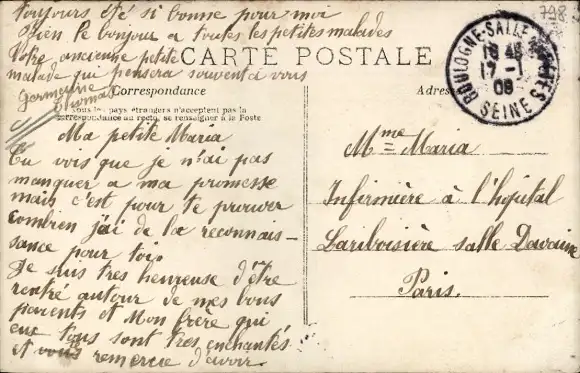 toujours été si bonne pour moi
Bien le bonjour a toutes les petites malades
Votre ancienne petite
malade qui pensera souvent à vous
Germaine
CARTE POSTALE
Correspondance
Tous les pays étrangers n'acceptent pas la
correspondance au recto, se renseigner à la Poste
Ma petite Maria
Tu vois que je n'ai pas
manquer a ma promesse
mais c'est pour te prouver
combien j'ai de la reconnais-
sance pour toi.
Je suis tres heureuse d'être
rentré autour de mes bons
parents et Mon frère qui
eux tous sont tres enchantés
et vous remercie d'avoir.
798
BOULOGNE-SUR-SEINE
17 -1
08
SEINE
Mme Maria
Infirmière à l'hôpital
Lariboisière salle Davaine
Paris.